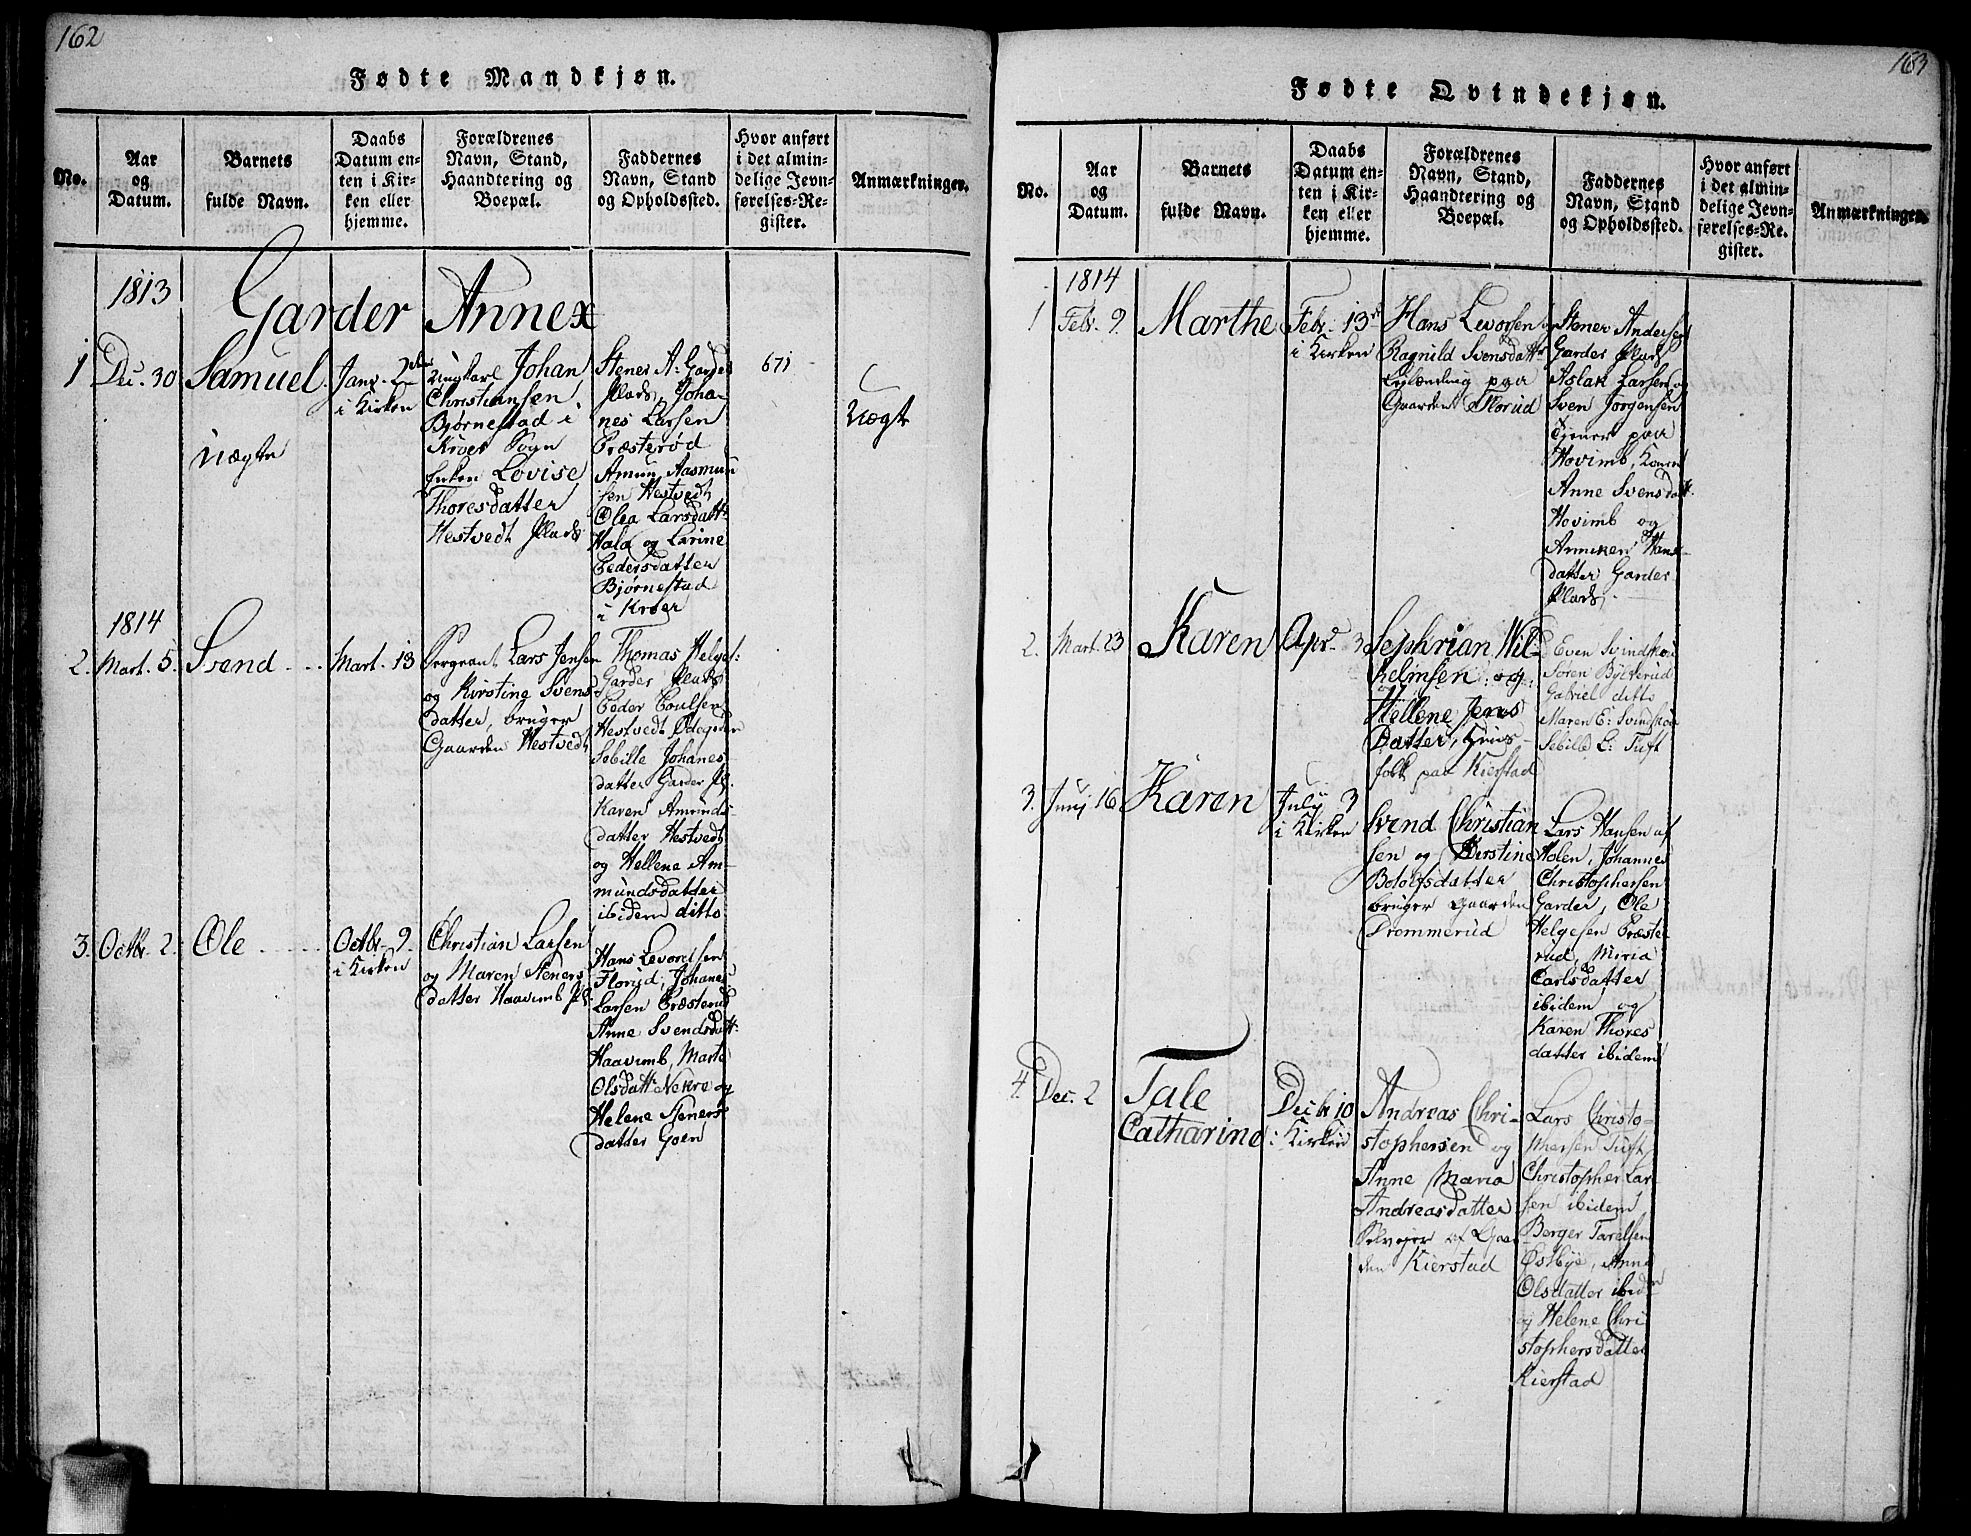 162
Fødte Mandkjøn.
No.
Aar
og
Datum.
Barnets
fulde Navn.
Daabs
Datum en-
ten i Kir-
ken eller
hjemme.
Forældrenes
Navn, Stand,
Haandtering og
Boepæl.
Faddernes
Navn, Stand
og Opholdssted.
Hvor anført
i det almin-
delige Jevn-
førelses-Re-
gister.
Anmærkninger.
1813
Garder Annex
1
Dec. 30
Samuel
uægte
Janr. 2den
i Kirken
Ungkarl Johan
Christiansen
Bjørnestad i
Kroer Sogn
Enken Lovise
Thoresdatter
Hestvedt Plads
Stener A. Garder
Plads, Joha-
nes Larsen
Præsterød
Amun Aasmun
sen Hestvedt
Olea Larsdattr
Hala og Larine
Pedersdatter
Bjørnestad
i Kroer
671
Uægt
1814
2.
Mart. 5.
Svend
Mart. 13
Sergeant Lars Jensen
og Kirstine Svens
datter, bruger
Gaarden Hestvedt
Thomas Helges:
Garder Plads
Peder Poulsen
Hestvedt Ødegrden
Sebille Johanes
datter Garder Pl.
Karen Amunds-
datter Hestvedt
og Hellene Am-
mundsdatter
ibidem ditto
3.
Octbr. 2.
Ole
Octbr. 9.
i Kirken
Christian Larsen
og Maren Steners
datter Haavimb Pl.
Hans Levorsen
Florud, Johanes
Larsen Præsterud
Anne Svendsdatt:
Haavimb, Marte
Olsdattr Nekre og
Helene Steners
datter Goen
163
Fødte Qvindekjøn.
No.
Aar
og
Datum.
Barnets
fulde Navn.
Daabs
Datum en-
ten i Kir-
ken eller
hjemme.
Forældrenes
Navn, Stand,
Haandtering og
Boepæl.
Faddernes
Navn, Stand
og Opholdssted.
Hvor anført
i det almin-
delige Jevn-
førelses-Re-
gister.
Anmærkninger.
1814
1
Febr. 9
Marthe
Febr. 13de
i Kirken
Hans Levorsen og
Ragnild Svensdattr
Leilænding paa
Gaarden Florud
Stener Andersen
Garder Plads
Aslak Larsen og
Sven Jørgensen
Tjener paa
Hovimb, Konen
Anne Svensdatt.
Hovimb og
Anniken Hans-
datter Garder
Plads
2.
Mart. 23
Karen
Apr. 3
Sephrian Wil-
helmsen og
Hellene Jens
Datter, Huus-
folk paa Kierstad
Even Svindskou
Søren Bylterud
Gabriel ditto
Maren E: Svindskou
Sebille L: Tuft
3.
Junj 16
Karen
July 3
i Kirken
Svend Christian
sen og Kirstine
Botolfsdatter
bruger Gaarden
Drommerud
Lars Hansen af
Holen, Johannes
Christophersen
Garder, Ole
Helgesen Præste
rud, Miria
Carlsdatter
ibidem og
Karen Thores
datter ibidem
4.
Dec. 2
Tale
Catharine
Decbr 10
i Kirken
Andreas Chri-
stophersen og
Anne Maria
Andreasdatter
Selvejer af Gaar
den Kierstad
Lars Christo-
phersen Tuft
Christopher Lar
sen ibidem
Berger Tarelsen
Østbye, Anne
Olsdatter ibidem
og Helene Chri
stophersdatter
Kierstad